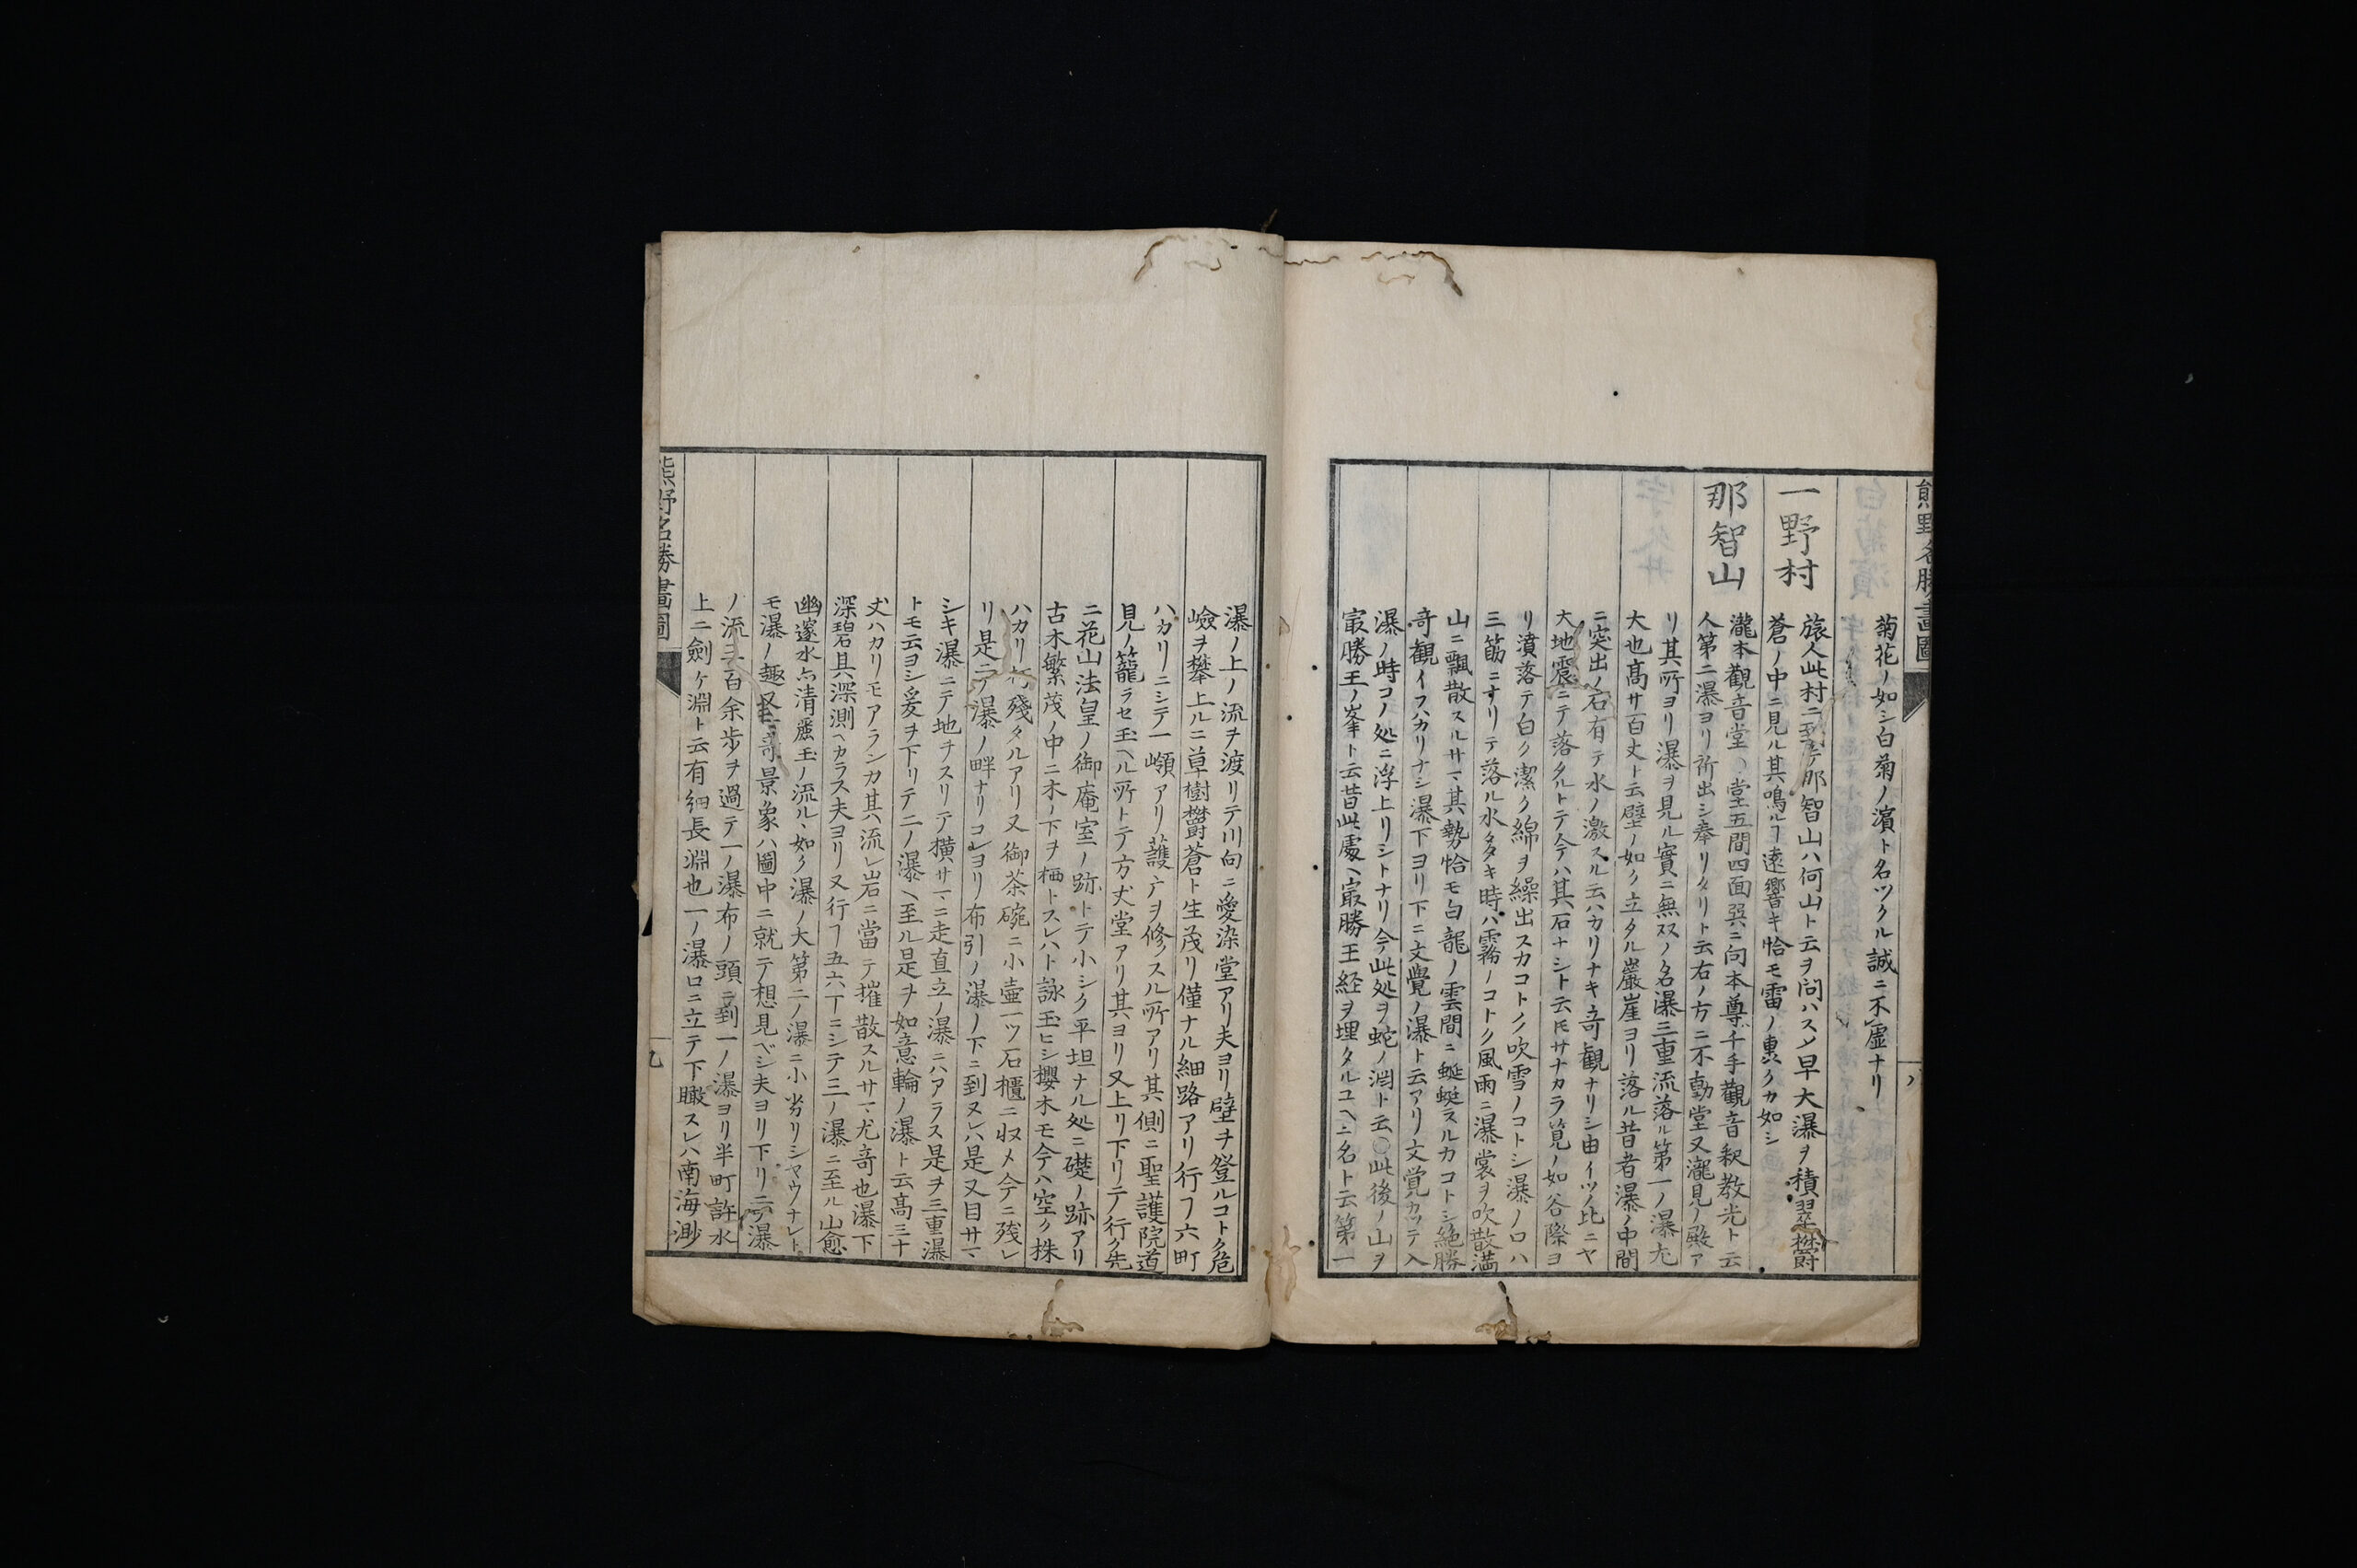 熊野名勝畫圖
菊花ノ如シ白菊ノ濱ト名ツクル誠ニ不虚ナリ
一野村
旅人此村ニ至テ那智山ハ何山ト云ヲ問ハスメ早大瀑ヲ積翠欝
蒼ノ中ニ見ル其鳴ルヿ遠響キ恰モ雷ノ轟クカ如シ
那智山
瀧本觀音堂 堂五間四面巽ニ向本尊千手觀音釈教光ト云
人第二瀑ヨリ祈出シ奉リタリト云右ノ方ニ不動堂又瀧見ノ殿ア
リ其所ヨリ瀑ヲ見ル實ニ無双ノ名瀑三重流落ル第一ノ瀑尤
大也髙サ百丈ト云壁ノ如ク立タル巖崖ヨリ落ル昔者瀑ノ中間
ニ突出ノ石有テ水ノ激スル云ハカリナキ竒観ナリシ由イツノ比ニヤ
大地震ニテ落タルトテ今ハ其石ナシト云𪜈サナカラ筧ノ如谷際ヨ
リ濆落テ白ク潔ク綿ヲ繰出スカコトク吹雪ノコトシ瀑ノ口ハ
三筋ニナリテ落ル水タキ時ハ霧ノコトク風雨ニ瀑裳ヲ吹散満
山ニ飄散スルサマ其勢恰モ白龍ノ雲間ニ蜒蜒スルカコトシ絶勝
竒観イフハカリナシ瀑下ヨリ下ニ文覺ノ瀑ト云アリ文覚カツテ入
瀑ノ時コノ処ニ浮上リシトナリ今此処ヲ蛇ノ渕ト云○此後ノ山ヲ
㝡勝王ノ峯ト云昔此處ヘ㝡勝王経ヲ埋タルユヘニ名ト云第一
八
瀑ノ上ノ流ヲ渡リテ川向ニ愛染堂アリ夫ヨリ壁ヲ登ルコトク危
嶮ヲ攀上ルニ草樹欝蒼ト生茂リ僅ナル細路アリ行ヿ六町
ハカリニシテ一嶺アリ護广ヲ修スル所アリ其側ニ聖護院道
見ノ籠ラセ玉ヘル所トテ方丈堂アリ其ヨリ又上リ下リテ行ク先
ニ花山法皇ノ御庵室ノ跡トテ小シク平坦ナル処ニ礎ノ跡アリ
古木繁茂ノ中ニ木ノ下ヲ栖トスレハト詠玉ヒシ櫻木モ今ハ空ク株
ハカリ朽殘タルアリ又御茶碗ニ小壷一ツ石櫃ニ収メ今ニ残レ
リ是二ノ瀑ノ畔ナリコレヨリ布引ノ瀑ノ下ニ到ヌレハ是又目サマ
シキ瀑ニテ地ヲスリテ横サマニ走直立ノ瀑ニハアラス是ヲ三重瀑
トモ云ヨシ爰ヲ下リテ二ノ瀑ヘ至ル是ヲ如意輪ノ瀑ト云髙三十
丈ハカリモアランカ其流レ岩ニ當テ摧散スルサマ尤竒也瀑下
深碧其深測ヘカラス夫ヨリ又行ヿ五六丁ニシテ三ノ瀑ニ至ル山愈
幽邃水亦清麗玉ノ流ルヽ如ク瀑ノ大第二ノ瀑ニ小劣リシヤウナレト
モ瀑ノ趣又竒景象ハ圖中ニ就テ想見ベシ夫ヨリ下リ二ノ瀑
ノ流三百余歩ヲ過テ一ノ瀑布ノ頭ニ到一ノ瀑ヨリ半町許水
上ニ劍ケ淵ト云有細長淵也一ノ瀑口ニ立テ下瞰スレハ南海渺
熊野名勝畫圖
九